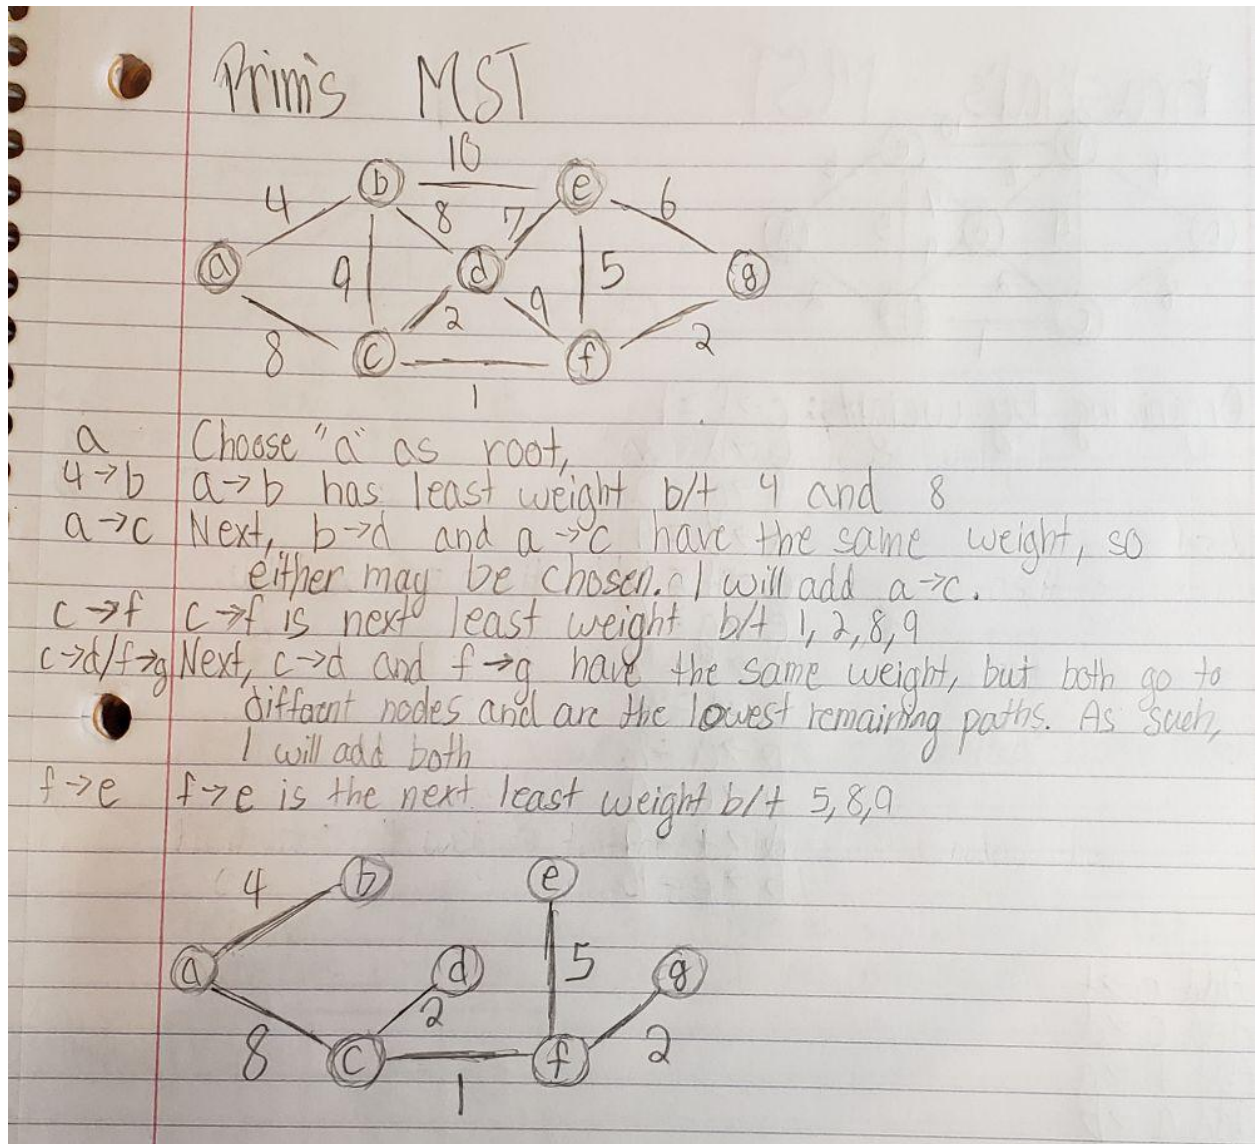 Prim's MST
10
4 b 8 7 e 6
a 9 d 5 g
2 9
8 c f 2
1
a Choose "a" as root,
4→b a→b has least weight b/t 4 and 8
a→c Next, b→d and a→c have the same weight, so
either may be chosen. I will add a→c.
c→f c→f is next least weight b/t 1, 2, 8, 9
c→d/f→g Next, c→d and f→g have the same weight, but both go to
diffaent nodes and are the lowest remaining paths. As such,
I will add both
f→e f→e is the next least weight b/t 5, 8, 9
4 b e
a d 5 g
2
8 c f 2
1